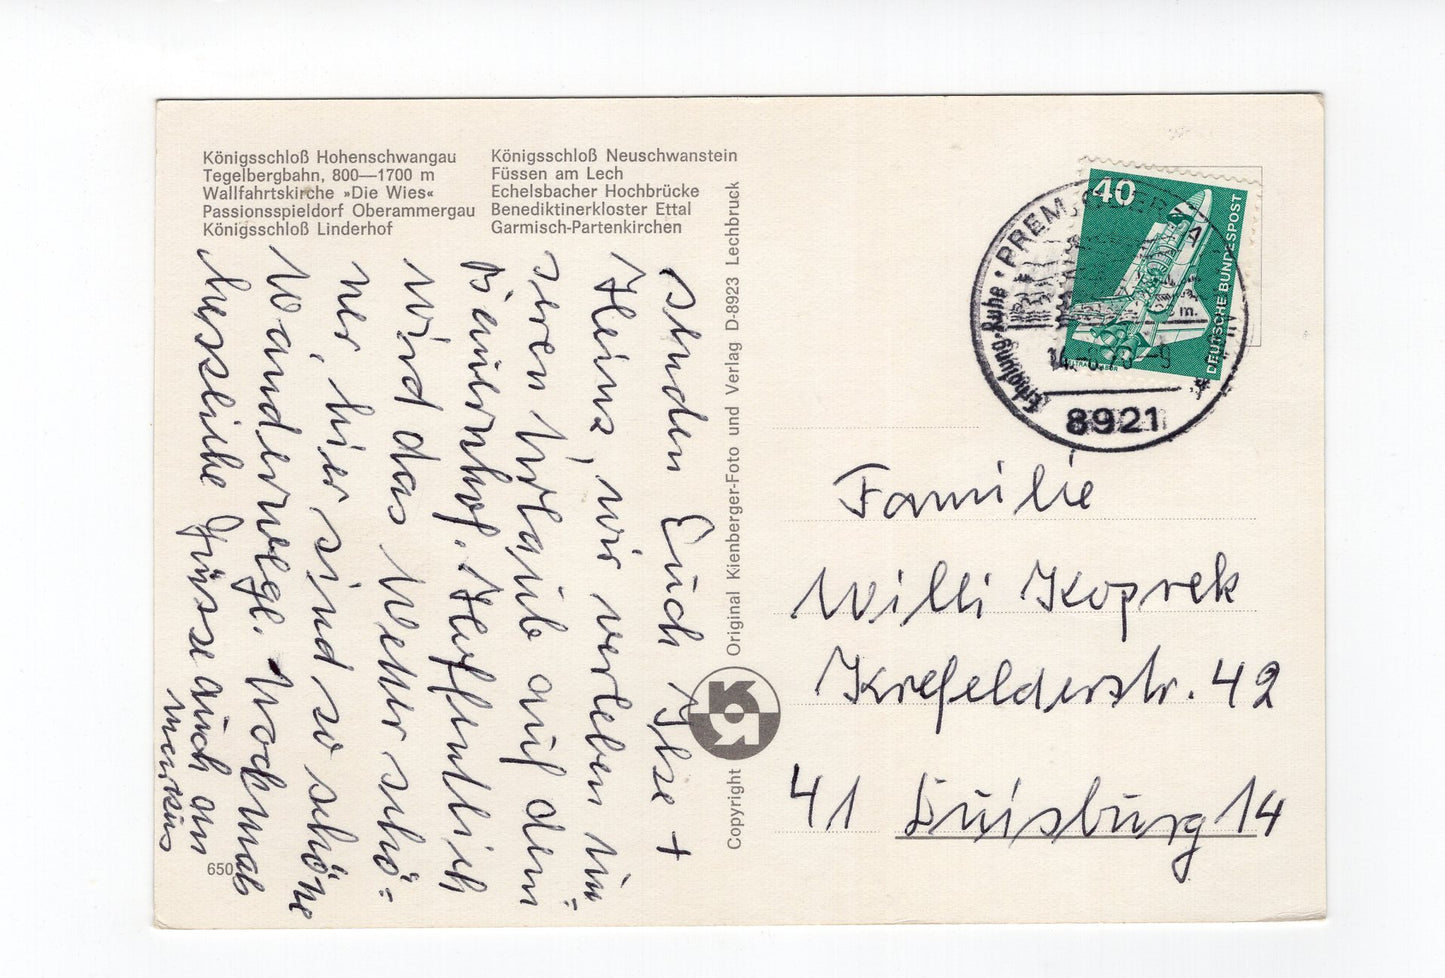 Königsschloß Hohenschwangau
Tegelbergbahn, 800—1700 m
Wallfahrtskirche »Die Wies«
Passionsspieldorf Oberammergau
Königsschloß Linderhof
Königsschloß Neuschwanstein
Füssen am Lech
Echelsbacher Hochbrücke
Benediktinerkloster Ettal
Garmisch-Partenkirchen
senden Euch Ilse +
Heinz, wir verleben un=
seren Urlaub auf dem
Bauernhof. Hoffentlich
wird das Wetter schö=
ner, hier sind so schöne
Wanderwege. Nochmals
herzliche Grüsse auch an
Markus
650
Copyright
Original Kienberger-Foto und Verlag D-8923 Lechbruck
40
DEUTSCHE BUNDESPOST
PREM
Erholung-Ruhe
8921
Familie
Willi Koprek
Krefelderstr. 42
41 Duisburg 14